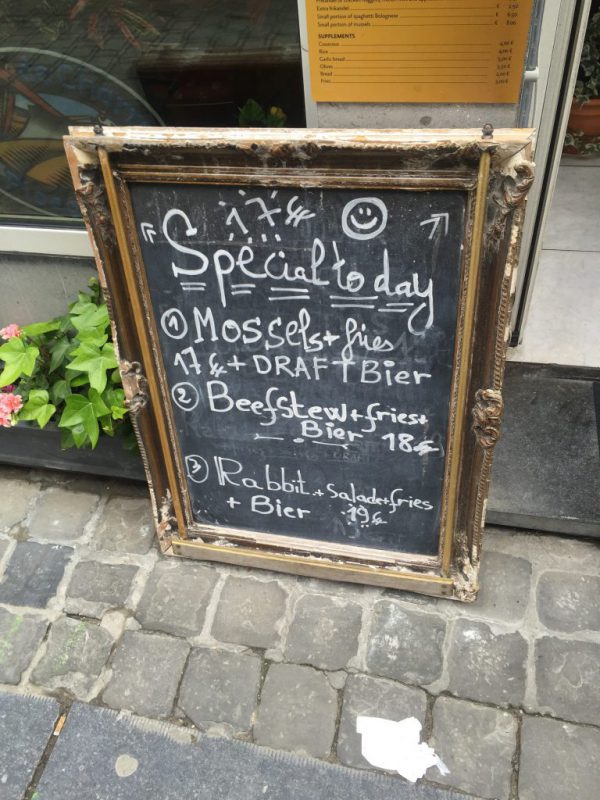 Extra frikandel € 2.50
Small portion of spaghetti Bolognese € 6.50
Small portion of mussels €
SUPPLEMENTS
Rice
Garlic bread
Olives
Bread
Fries
17 €
Special today
1 Mossels + fries
17 € + DRAFT Bier
2 Beefstew + fries +
Bier 18 €
3 Rabbit + Salade + fries
+ Bier 19 €